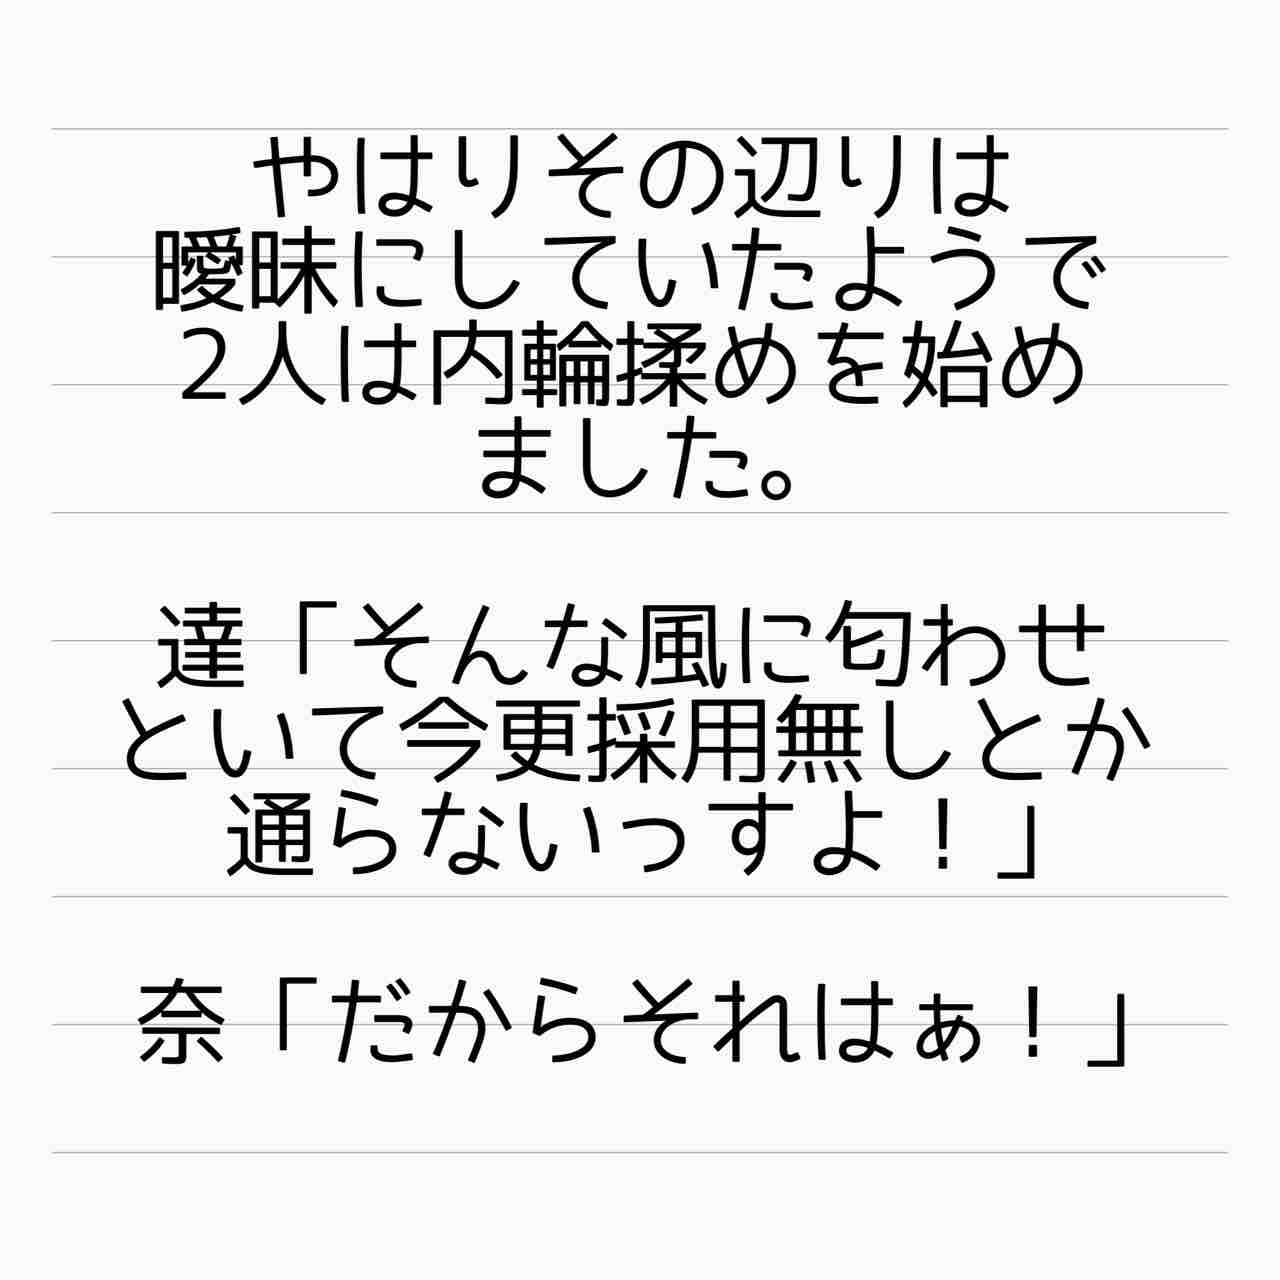 やはりその辺りは
曖昧にしていたようで
2人は内輪揉めを始め
ました。
達「そんな風に匂わせ
といて今更採用無しとか
通らないっすよ！」
奈「だからそれはぁ！」